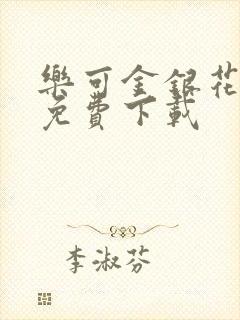 樂可金銀花
免費下載
李淑芬